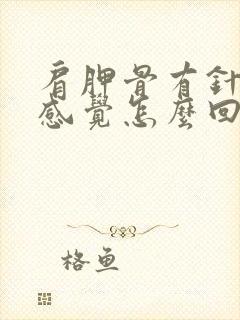 肩胛骨有針
感覺怎麼回
格魚